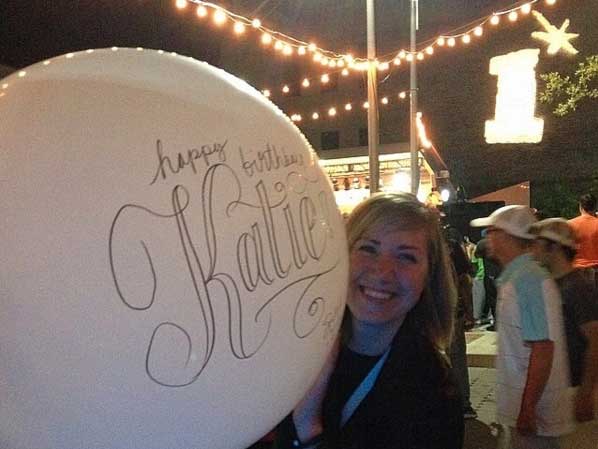 happy birthday
Katie!
1